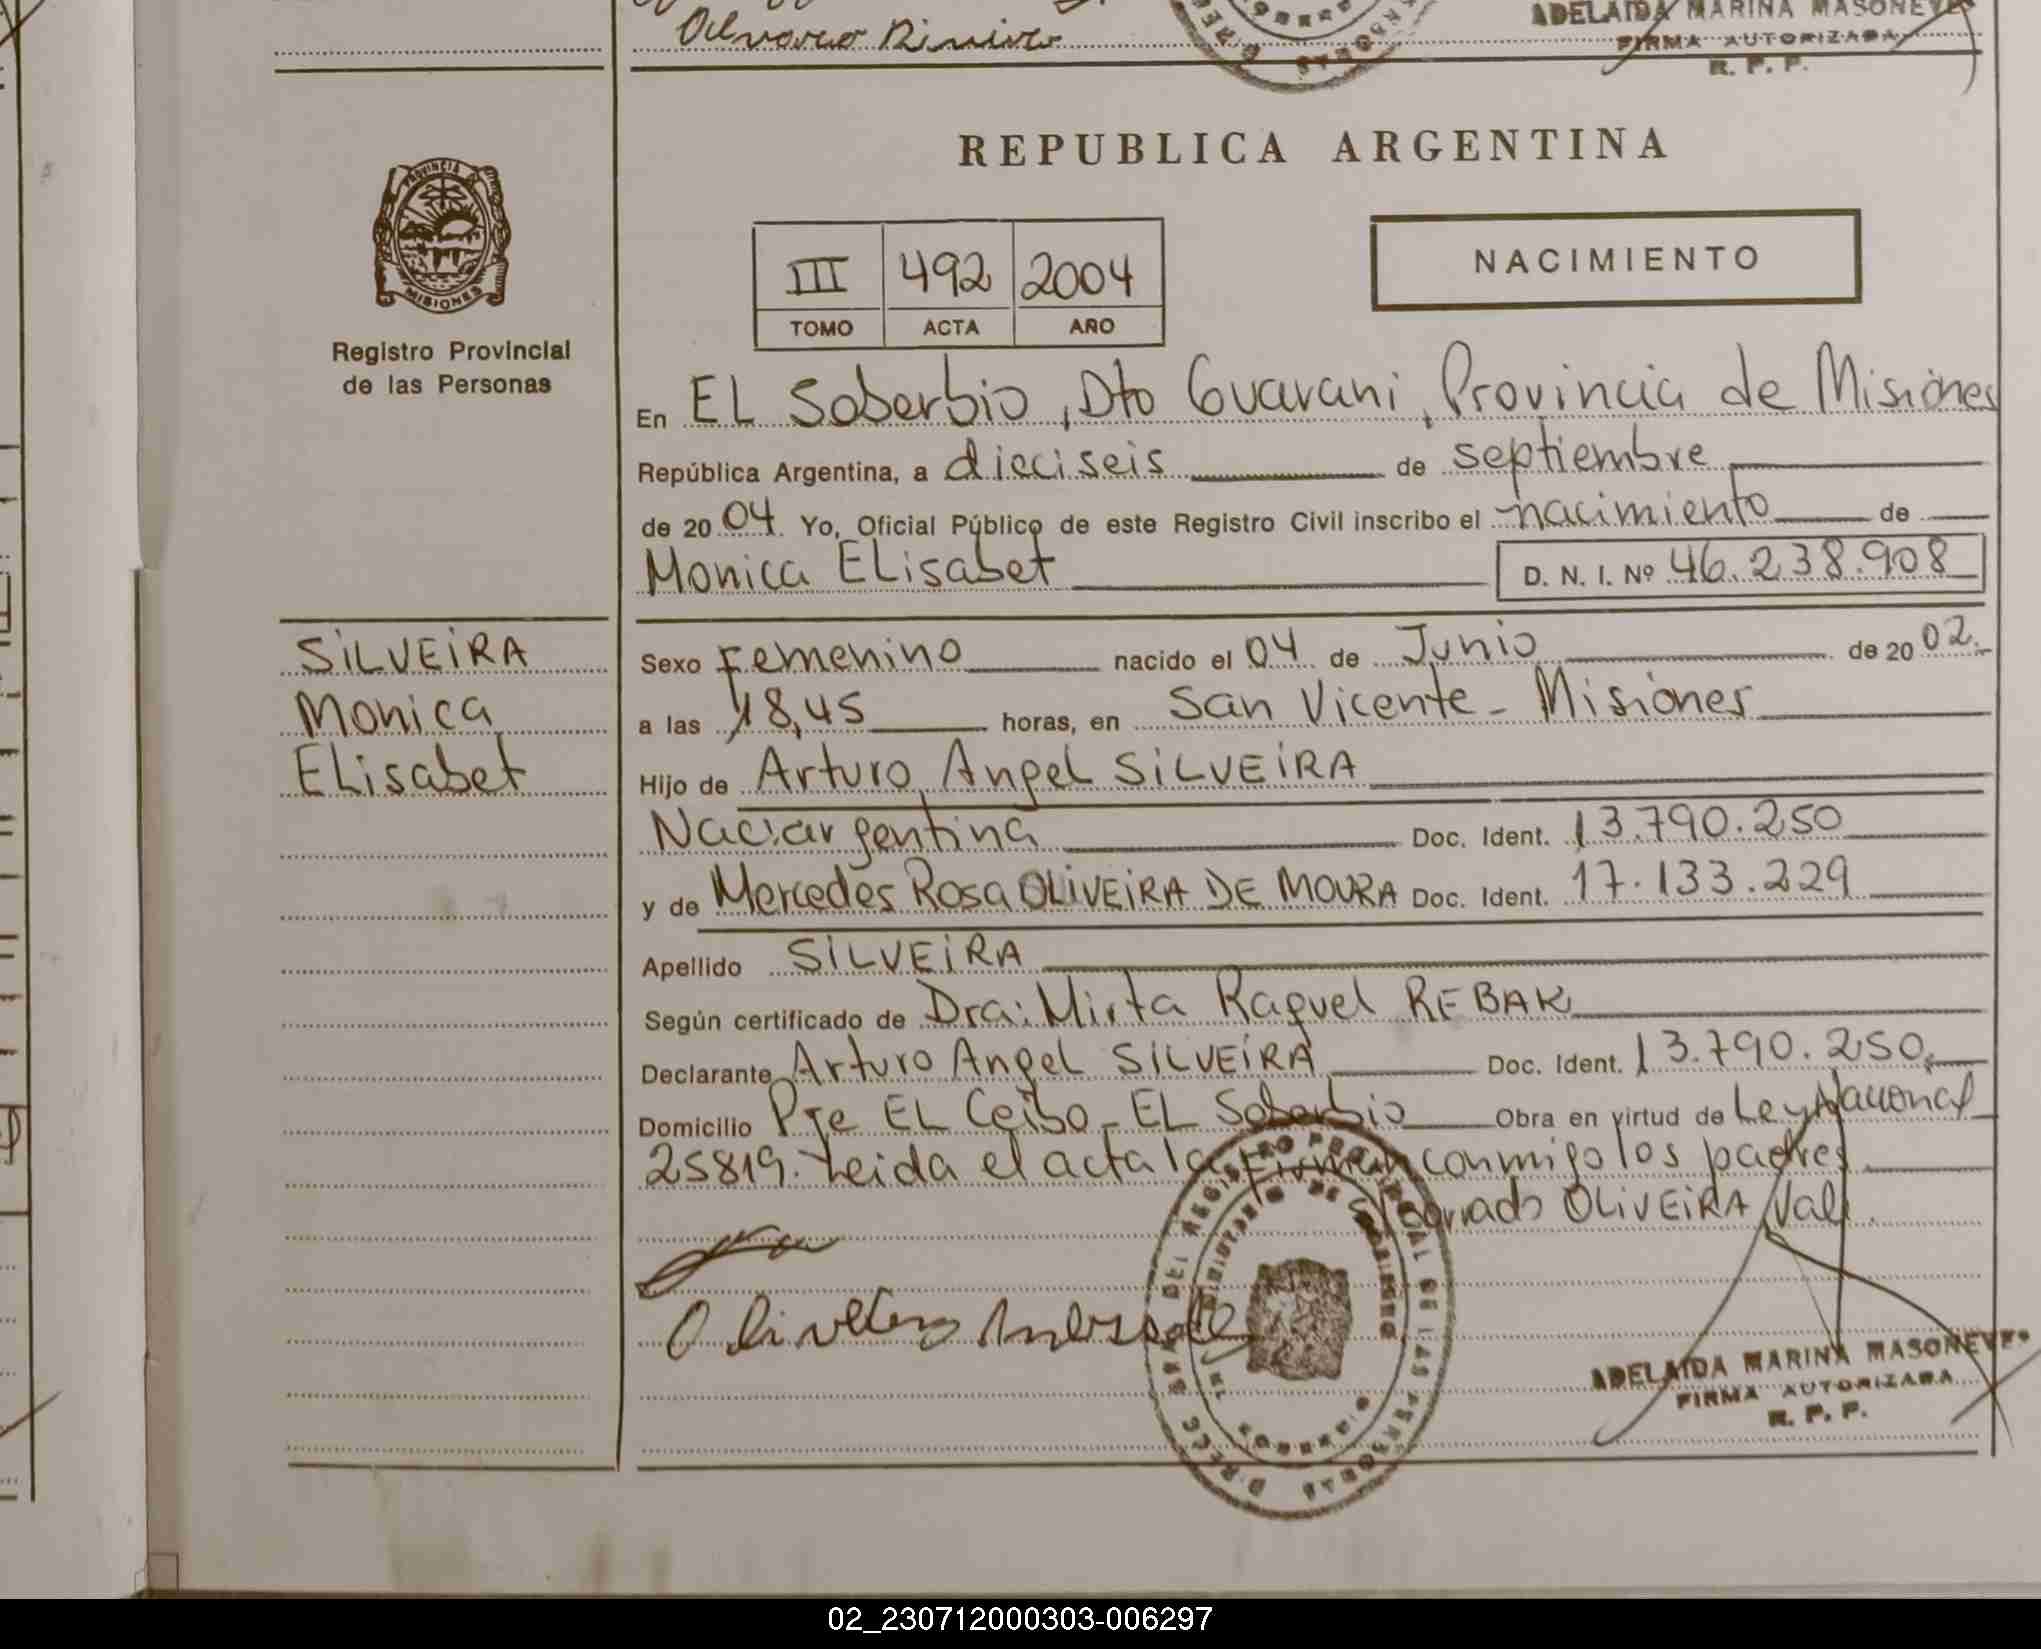 Alvarao Rimirez
ADELAIDA MARINA MASONEVE
FIRMA AUTORIZADA
R. P. P.
REPUBLICA ARGENTINA
PROVINCIA D
MISIONES
Registro Provincial
de las Personas
III 492 2004
TOMO ACTA AÑO
NACIMIENTO
En EL Soberbio, Dto Guarani, Provincia de Misiones
República Argentina, a dieciseis de septiembre
de 20 04 Yo, Oficial Público de este Registro Civil inscribo el nacimiento de
Monica ELisabet D. N. I. Nº 46.238.908
SiLVEiRA
Monica
ELisabet
Sexo Femenino nacido el 04 de Junio de 20 02.
a las 18,45 horas, en San Vicente - Misiones
Hijo de Arturo Angel SiLVEiRA
Nac: argentina Doc. Ident. 13.790.250
y de Mercedes Rosa OLiVEiRA DE MOURA Doc. Ident. 17.133.229
Apellido SiLVEiRA
Según certificado de Dra: Mirta Raquel REBAK
Declarante Arturo Angel SiLVEiRA Doc. Ident. 13.790.250.
Domicilio Pje EL Ceibo - EL Soberbio Obra en virtud de Ley Nacional
25819. Leida el acta la firman conmigo los padres
borrado OLiVEiRA Vale.
ADELAIDA MARINA MASONEVE
FIRMA AUTORIZADA
R. P. P.
02_230712000303-006297